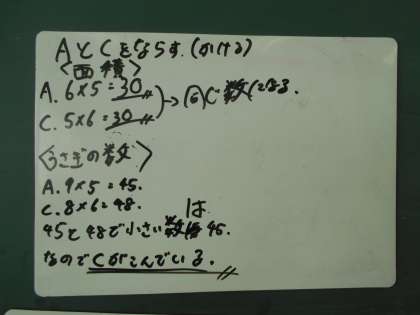 AとCをならす.(かける)
〈面積〉
A. 6×5=30
C. 5×6=30 →同じ数になる.
〈うさぎの数〉
A. 9×5=45.
C. 8×6=48.
45と48で小さい数は45.
なのでCがこんでいる.